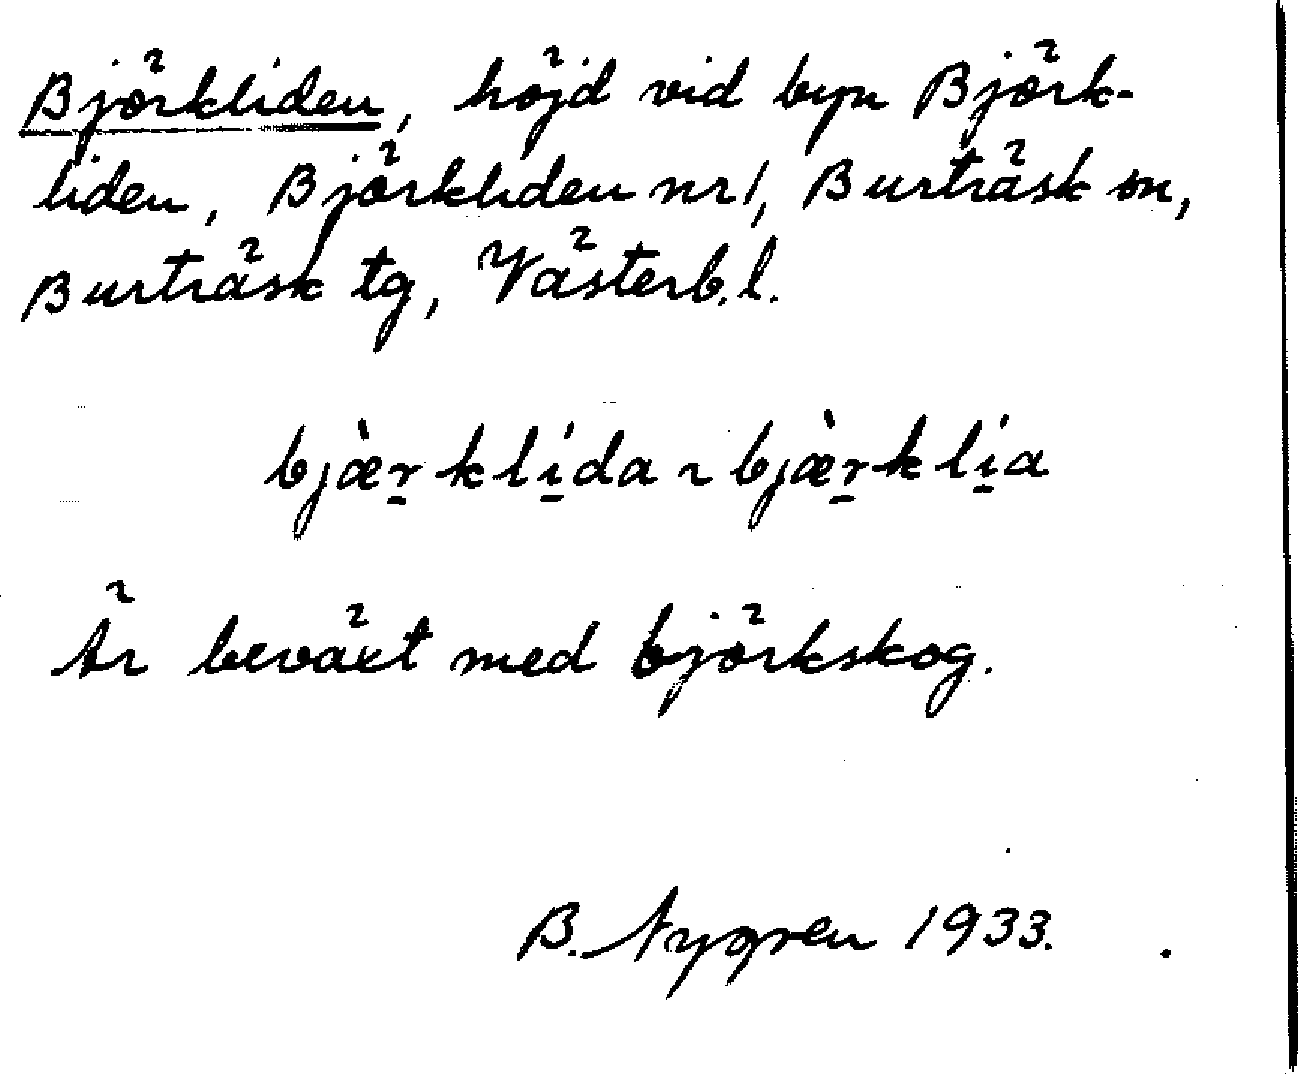 Björkliden, höjd vid byn Björk-
liden, Björkliden nr 1, Burträsk sn,
Burträsk tg, Västerb. l.
bjæ̀r̲klí̲da ~ bjæ̀r̲klí̲a
Är beväxt med björkskog.
B. Nygren 1933.